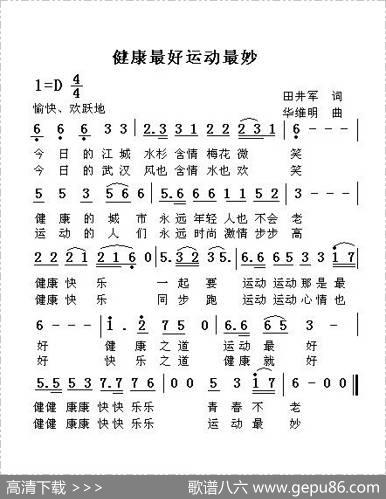 健康最好运动最妙
1=D 4/4
愉快、欢跃地
田井军 词
华维明 曲
6 6 6 3 3 | 2.3 3 1 2 2 2 3 1 | 6 - - - |
今 日 的 江 城 水杉 含情 梅花 微 笑
今 日 的 武 汉 风也 含情 水也 欢 笑
5 5 3 5 2 | 5.6 6 6 1 1 5 1 | 3 - - - |
健 康 的 城 市 永远 年轻 人也 不会 老
运 动 的 人 们 永远 时尚 激情 步步 高
2 2 2 1 2 1 6 0 | 5. 3 3 5. 0 | 5.6 5.6 1 2 1 7 |
健康 快 乐 一 起 要 运动 运动 那是 最
健康 快 乐 同 步 跑 运动 运动 心情 也
6 - - - | 1 . 2 7 5 0 | 6 . 6 6 5 3 |
好 健 康 之 道 运 动 最 好
好 快 乐 之 道 健 康 就 好
5.5 5.5 7.7 7 6 | 0 0 5 3 | 1 7 - 0 0 ‖
健健 康康 快快 乐乐 青 春 不 老
健健 康康 快快 乐乐 运 动 最 妙
高清下载 >>> 歌谱八六 www.gepu86.com